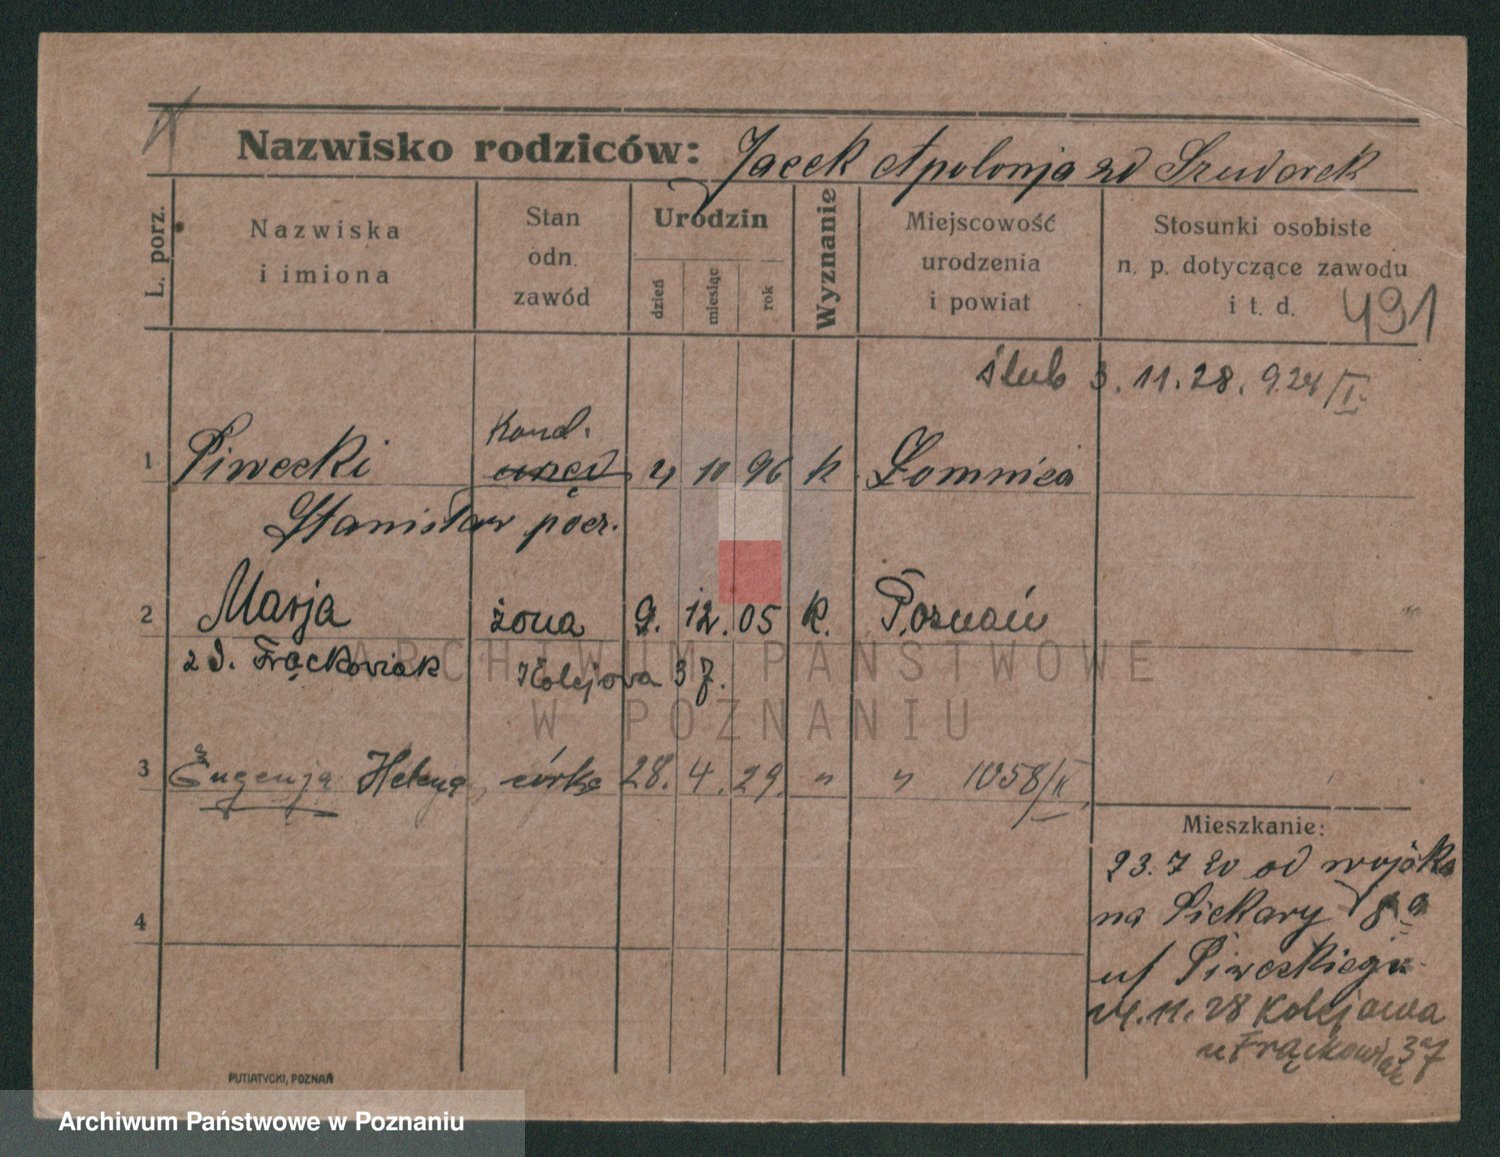 Nazwisko rodziców: Jacek Apolonja zd Szudarek
L. porz.
Nazwiska
i imiona
Stan
odn.
zawód
Urodzin
dzień
miesiąc
rok
Wyznanie
Miejscowość
urodzenia
i powiat
Stosunki osobiste
n. p. dotyczące zawodu
i t. d.
491
ślub 3.11.28. 924/I.
Kond.
1 Piwecki 4 10 96 k Łomnica
Stanisław
2 Marja żona 9. 12. 05 k. Poznań
zd. Frąckowiak Kolejowa 37.
3 Eugenja Helena córka 28. 4. 29. " " 1058/II
4
Mieszkanie:
23.7 20 od wojska
na Piekary
u/ Piweckiego
24.11.28 Kolejowa
u Frąckowiak 37
PUTIATYCKI, POZNAŃ
ARCHIWUM PAŃSTWOWE
W POZNANIU
Archiwum Państwowe w Poznaniu